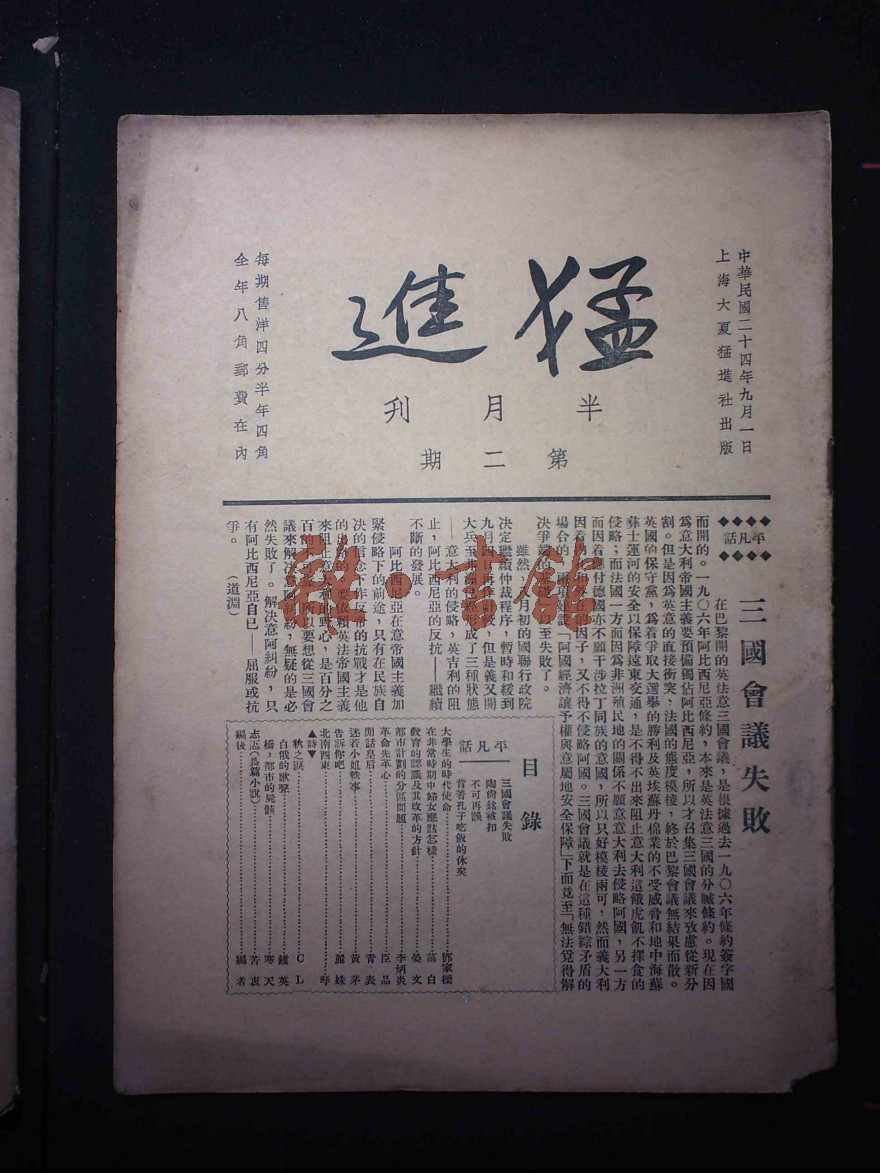 中華民國二十四年九月一日
上海大夏猛進社出版
猛進
半月刊
第二期
每期售洋四分半年四角
全年八角郵費在內
平凡話
三國會議失敗
在巴黎開的英法意三國會議，是根據過去一九〇六年條約簽字國
而開的。一九〇六年阿比西尼亞條約，本來是英法意三國的分贓條約。現在因
爲意大利帝國主義要預備獨佔阿比西尼亞，所以才召集三國會議來攷慮從新分
割。但是因爲英意的直接衝突，法國的態度模棱，終於巴黎會議無結果而散。
英國的保守黨，爲着爭取大選舉的勝利及英埃蘇丹棉業的不受威脅和地中海蘇
彝士運河的安全以保障遠東交通，是不得不出來阻止意大利這餓虎飢不擇食的
侵略；而法國一方面因爲非洲殖民地的關係不願意意大利去侵略阿國，另一方
而因着對付德國亦不願干涉拉丁同族的意國，所以只好模棱兩可，然而義大利
因着內在和外在的因子，又不得不侵略阿國。三國會議就是在這種錯綜矛盾的
場合的「阿國經濟讓予權與意屬地安全保障」下面竟至「無法覓得解
決爭議的至失敗了。
雖然月初的國聯行政院
決定繼續仲裁程序，暫時和緩到
九月四日再作計議，但是義又開
大兵至非洲成了三種狀態
——意大利的侵略，英吉利的阻
止，阿比西尼亞的反抗——繼續
不斷的發展。
阿比西尼亞在意帝國主義加
緊侵略下的前途，只有在民族自
決的信念下作反帝的抗戰才是他
的出路的。要依賴英法帝國主義
來阻止意大利的野心，是百分之
百的不可靠，所以要想從三國會
議來解决意阿糾紛，無疑的是必
然失敗了。解決意阿糾紛，只
有阿比西尼亞自己——屈服或抗
爭。（道淵）
目錄
平凡話
三國會議失敗
陶尙銘被扣
不可再誤
背著孔子吃飯的休矣
大學生的時代使命 鄧家樑
在非常時期中婦女應該怎樣 翦白
敎育的認識及其改革的方針 晏文
都市計劃的分區問題 李炳爽
革命先革心 臣品
閒話皇后 青表
迷若小姐軼事 黃茅
告訴你吧 麗姝
北南西東 琴
▲詩▼
秋之淚 CL
白俄的歌聲 鑪英
橋，都市的屍骸 寒天
志忑（長篇小說） 苦衷
編後 編者